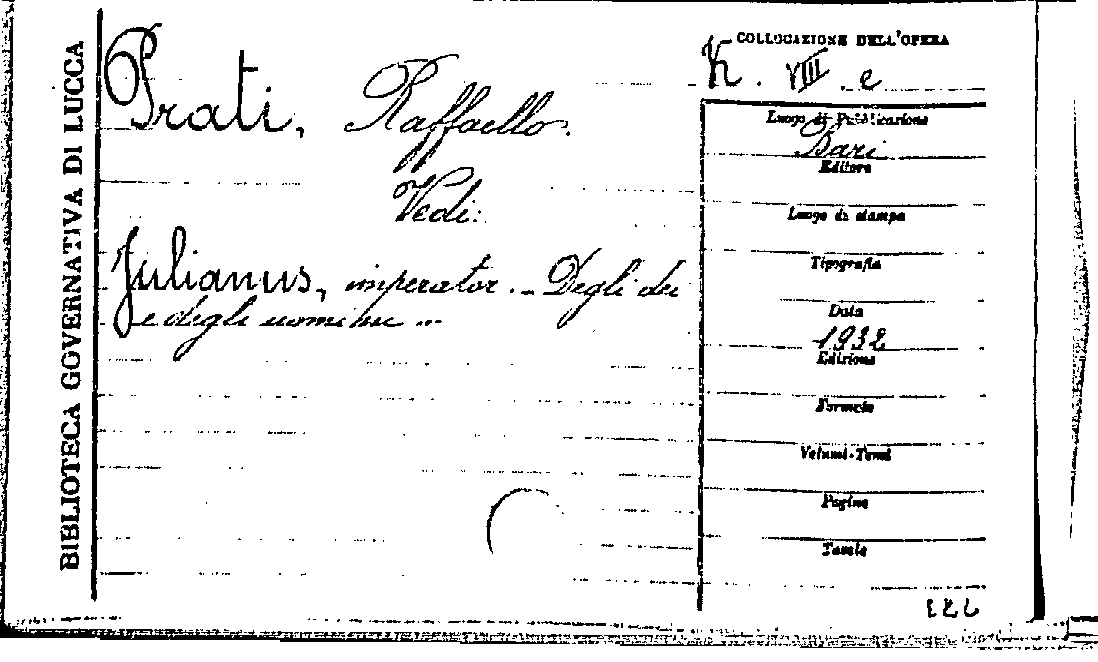 BIBLIOTECA GOVERNATIVA DI LUCCA
Prati, Raffaello.
Vedi:
Julianus, imperator. - Degli dei
e degli uomini ...
COLLOCAZIONE DELL'OPERA
K. VIII. e
Luogo di Pubblicazione
Bari
Editore
Luogo di stampa
Tipografia
Data
1932
Edizione
Formato
Volumi-Tomi
Pagine
Tavole